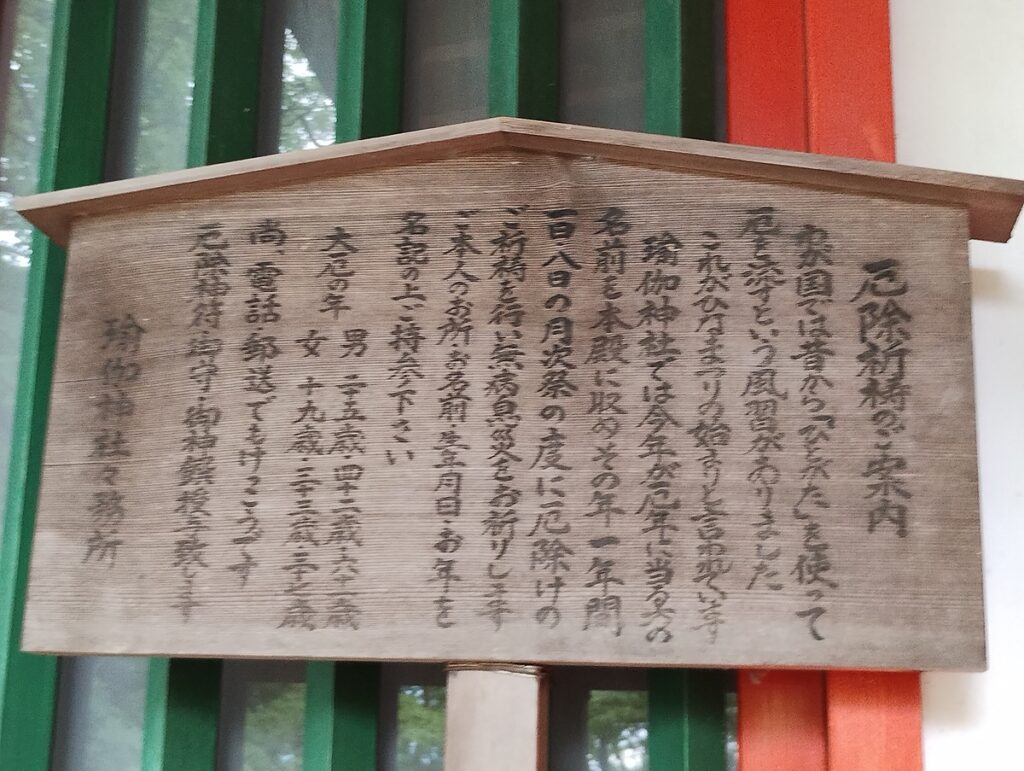 厄除祈祷のご案内
わが国では昔から「ひとがた」を使って
厄を流すという風習がありました
これがひなまつりの始まりと言われています
瑜伽神社では今年が厄年に当る方の
名前を本殿に収めその年一年間
一日・八日の月次祭の度に厄除けの
ご祈祷を行い無病息災をお祈りします
ご本人のお所・お名前・生年月日・お年を
名記の上ご持参下さい
大厄の年 男 二十五歳・四十二歳・六十一歳
女 十九歳・三十三歳・三十七歳
尚、電話・郵送でもけっこうです
厄除神符・御守・御神饌授与致します
瑜伽神社々務所